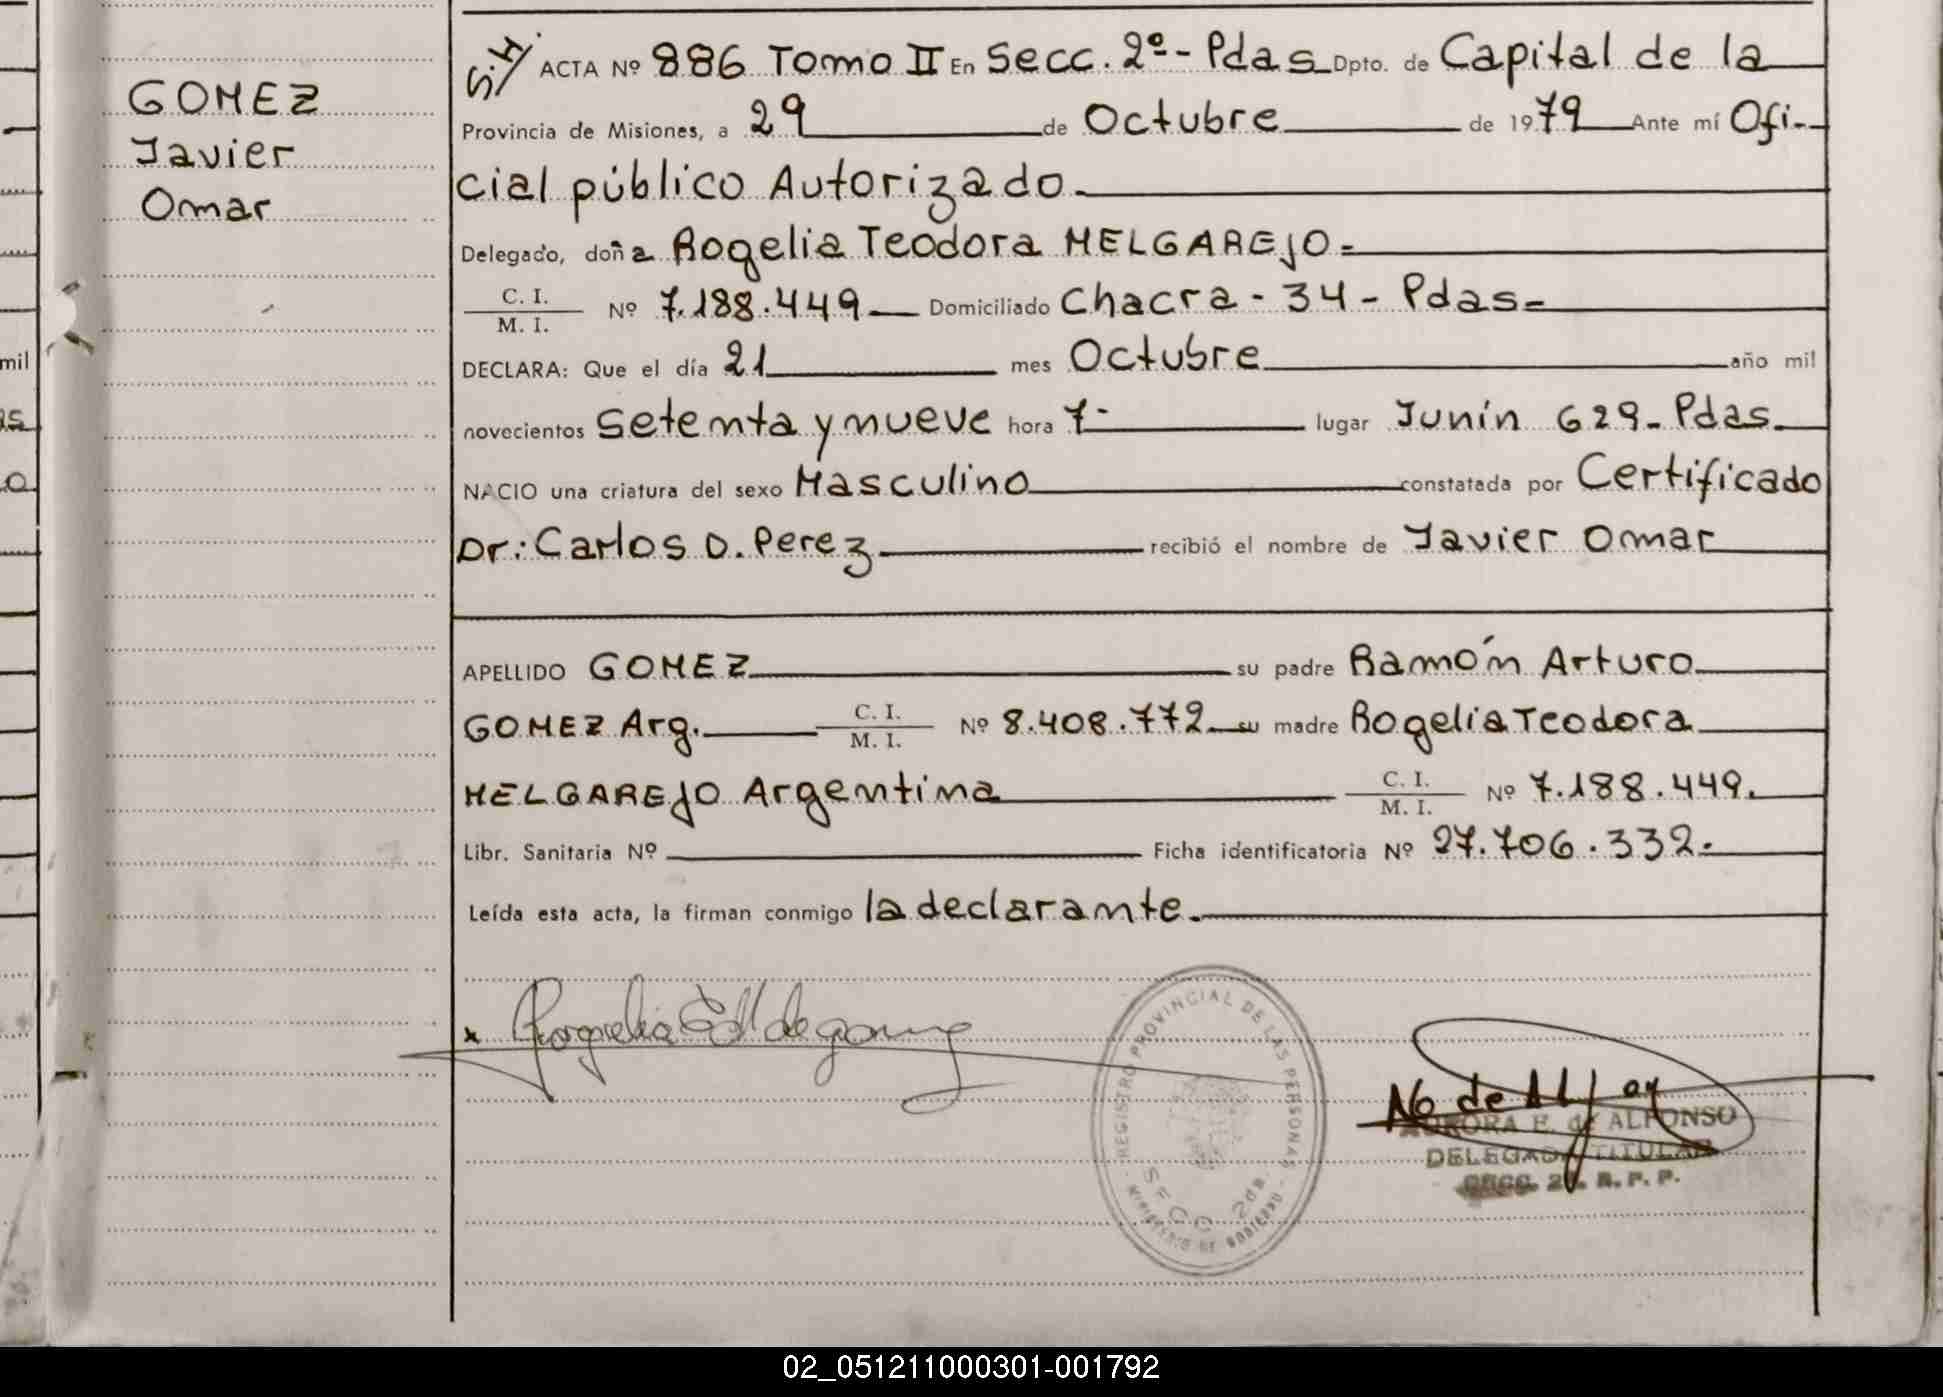 GOMEZ
Javier
Omar
S/H. ACTA Nº 886 Tomo II En Secc. 2º - Pdas Dpto. de Capital de la
Provincia de Misiones, a 29 de Octubre de 1979 Ante mí Ofi-
cial público Autorizado.
Delegado, doña Rogelia Teodora MELGAREJO=
C. I.
M. I. Nº 7.188.449 Domiciliado Chacra - 34 - Pdas=
DECLARA: Que el día 21 mes Octubre año mil
novecientos setenta y nueve hora 7- lugar Junín 629- Pdas.
NACIO una criatura del sexo Masculino constatada por Certificado
Dr: Carlos D. Perez recibió el nombre de Javier Omar
APELLIDO GOMEZ su padre Ramón Arturo
GOMEZ Arg. C. I. M. I. Nº 8.408.772 su madre Rogelia Teodora
MELGAREJO Argentina C. I. M. I. Nº 7.188.449.
Libr. Sanitaria Nº Ficha identificatoria Nº 27.706.332.
Leída esta acta, la firman conmigo la declarante.
x Rogelia
REGISTRO PROVINCIAL DE LAS PERSONAS
SECC. 2da.
MINISTERIO DE GOBIERNO
AURORA E. de ALFONSO
DELEGADA TITULAR
SECC. 2a. R. P. P.
mil
02_051211000301-001792